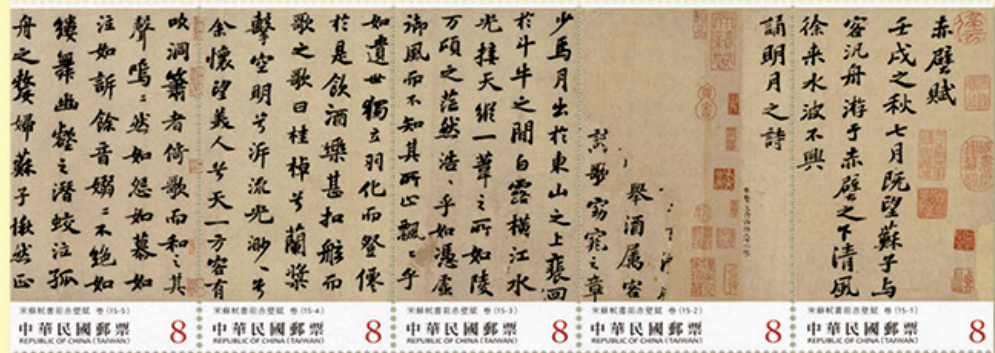 赤壁賦
壬戌之秋七月既望蘇子与
客汎舟游于赤壁之下清風
徐来水波不興
誦明月之詩
舉酒属客
歌窈窕之章
少焉月出於東山之上裵回
於斗牛之間白露橫江水
光接天縱一葦之所如陵
万頃之茫然浩〻乎如馮虚
御風而不知其所止飄〻乎
如遺世獨立羽化而登僊
於是飲酒樂甚扣舷而
歌之歌曰桂棹兮蘭槳
擊空明兮泝流光渺〻兮
余懷望美人兮天一方客有
吹洞簫者倚歌而和之其
聲嗚〻然如怨如慕如
泣如訴餘音嫋〻不絶如
縷舞幽壑之潛蛟泣孤
舟之嫠婦蘇子愀然正
宋蘇軾書前赤壁賦 卷 (15-5)
中華民國郵票 8
REPUBLIC OF CHINA (TAIWAN)
宋蘇軾書前赤壁賦 卷 (15-4)
中華民國郵票 8
REPUBLIC OF CHINA (TAIWAN)
宋蘇軾書前赤壁賦 卷 (15-3)
中華民國郵票 8
REPUBLIC OF CHINA (TAIWAN)
宋蘇軾書前赤壁賦 卷 (15-2)
中華民國郵票 8
REPUBLIC OF CHINA (TAIWAN)
宋蘇軾書前赤壁賦 卷 (15-1)
中華民國郵票 8
REPUBLIC OF CHINA (TAIWAN)